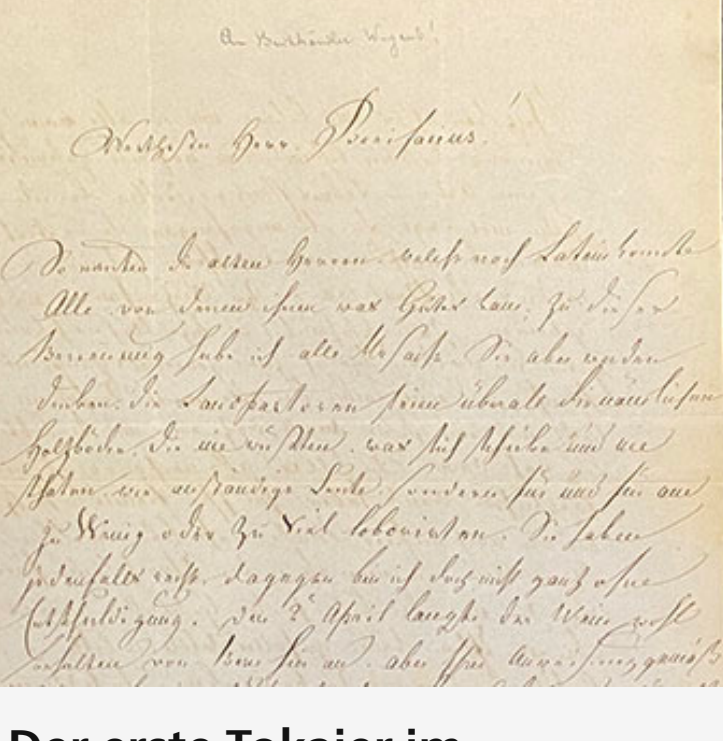 An Buchhändler Wigand!
Werthester Herr Bonifacius!
So nannten die alten Herren welche noch Latein konnten
Alle von denen ihnen was Gutes kam. Zu dieser
Benennung habe ich alle Ursache. Sie aber werden
denken: die Landpastoren seien überall die nämlichen
Holzböcke, die nie wüßten, was sich schicke und nie
thäten wie anständige Leute, sondern für und für an
zu Wenig oder zu Viel laborirten. Sie haben
jedenfalls recht, dagegen bin ich doch nicht ganz ohne
Entschuldigung. Den 2 April langte der Wein wohl
erhalten von Bern hier an, aber Ihrer Anweisung gemäß
Der erste Tokajer im